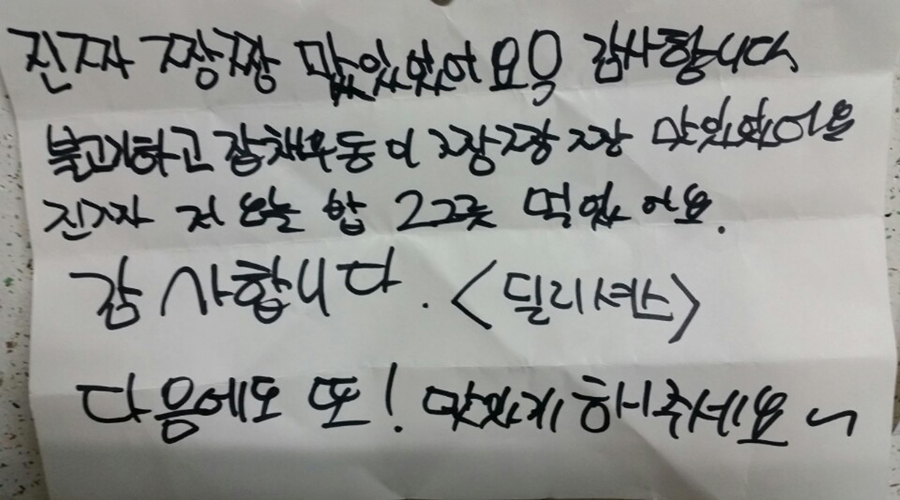 진짜 짱짱 맜있었어요옥 감사합니다
불고기하고 잡채우동이 짱짱짱 맛있었어용
진짜 저 오늘 밥 2그릇 먹었어요.
감사합니다. <딜리셔스>
다음에도 또! 맛있게 해주세요~